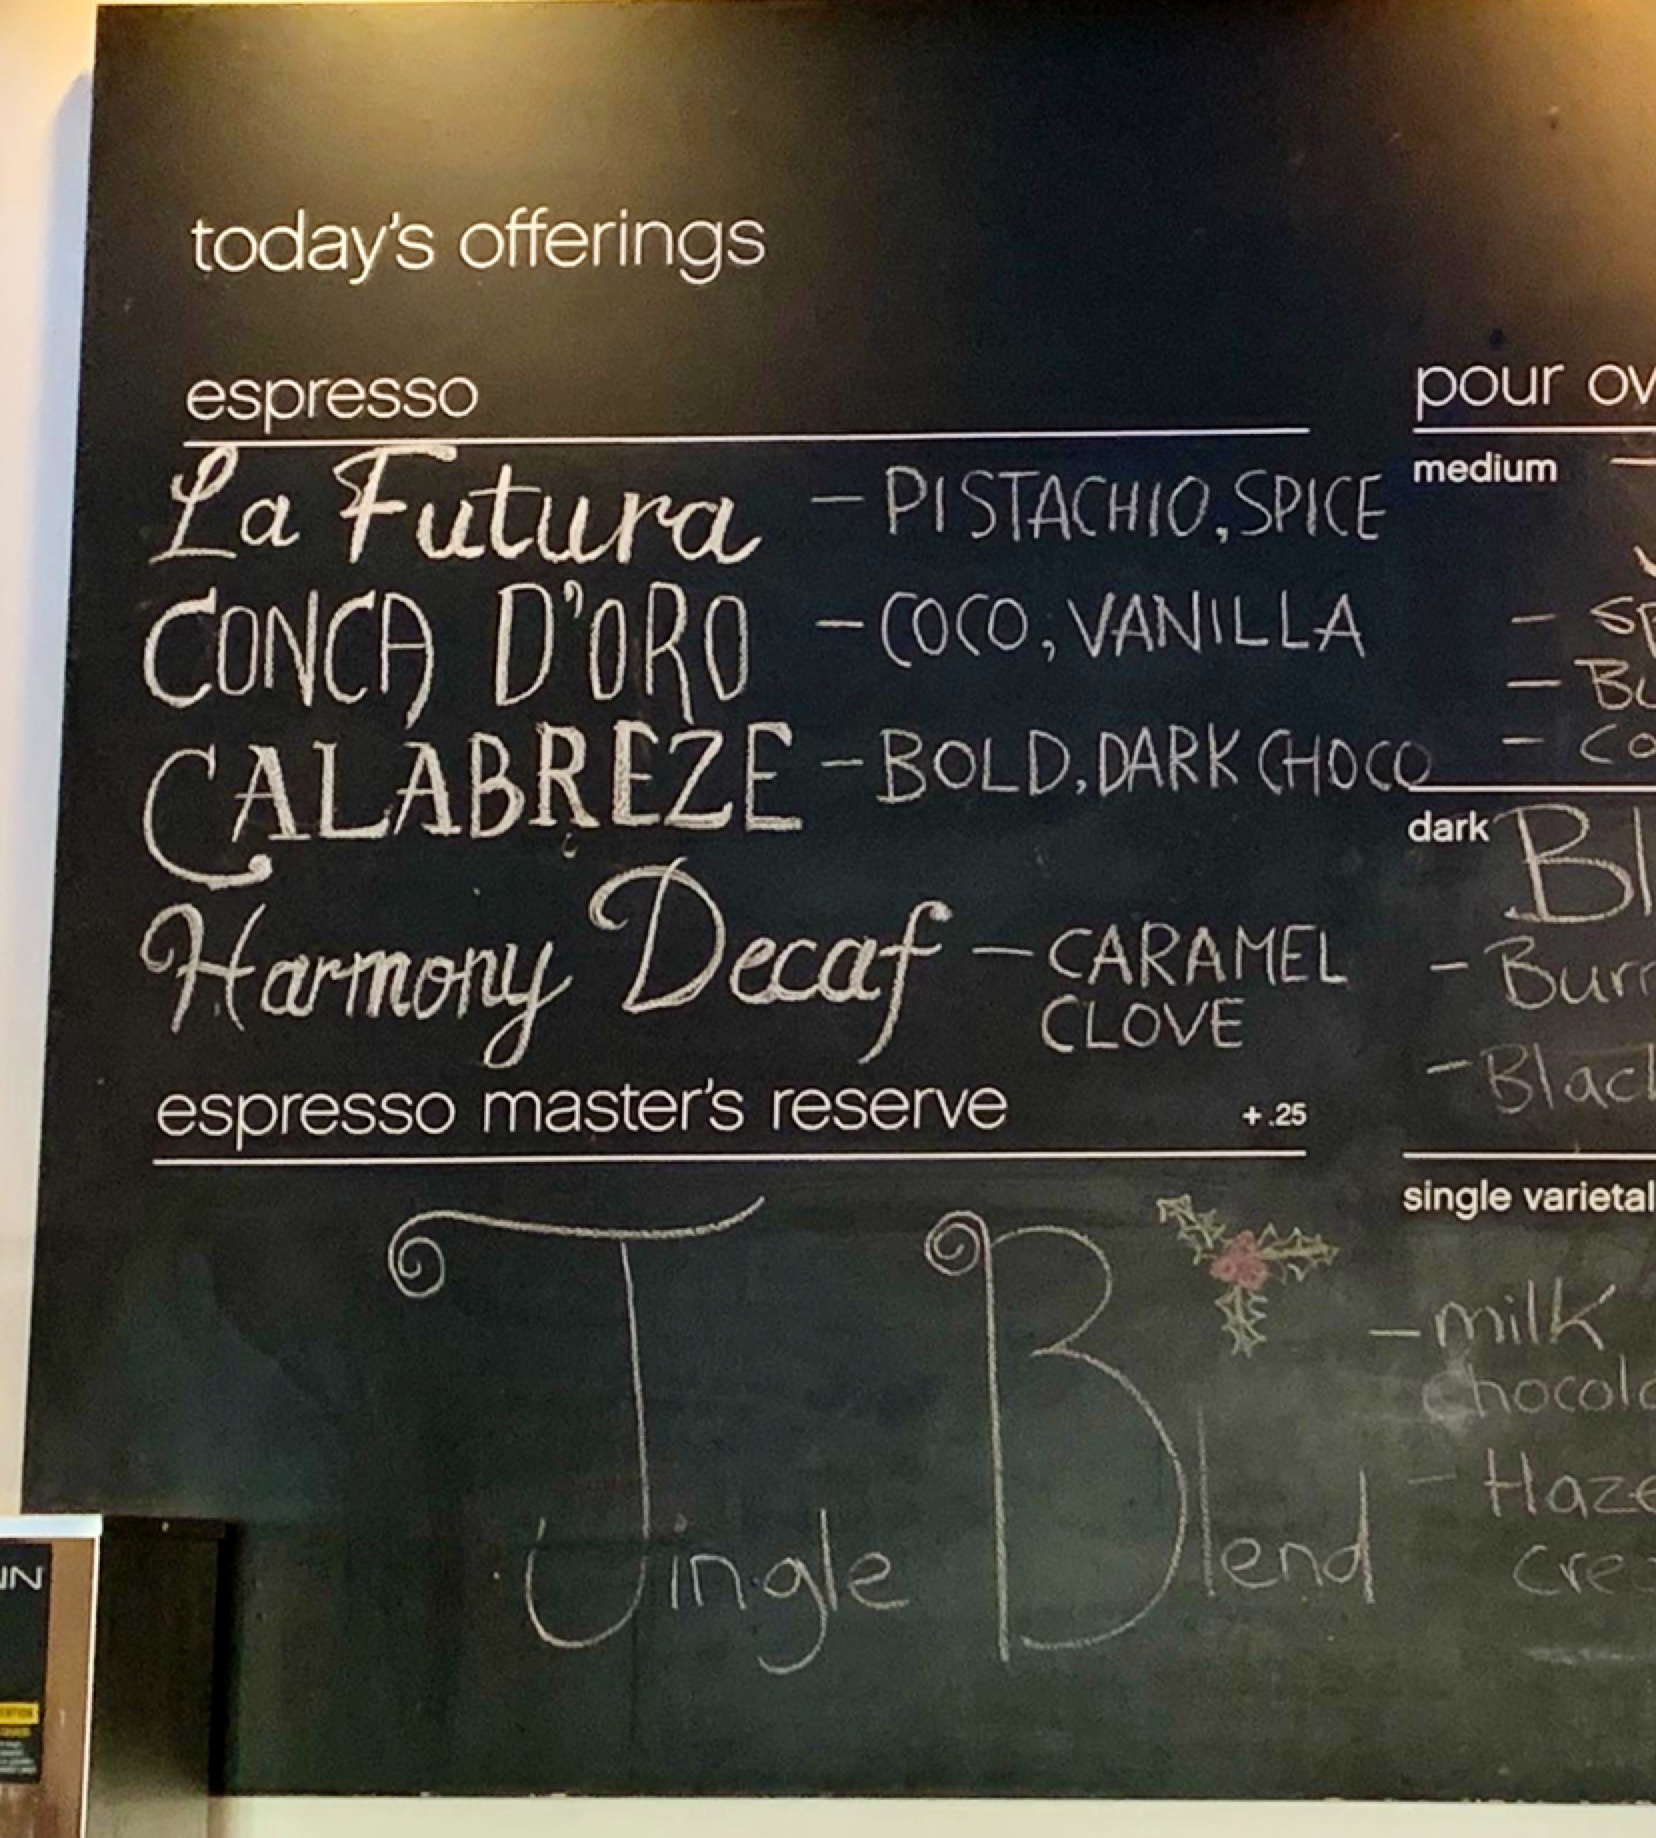 today's offerings
espresso
La Futura - PISTACHIO, SPICE
CONCA D'ORO - COCO, VANILLA
CALABREZE - BOLD, DARK CHOCO
Harmony Decaf - CARAMEL
CLOVE
espresso master's reserve +.25
Jingle Blend
pour ov
medium -
- Sp
- Bu
- Co
dark Bl
- Burr
- Black
single varietal
- milk
chocola
- Haze
crea